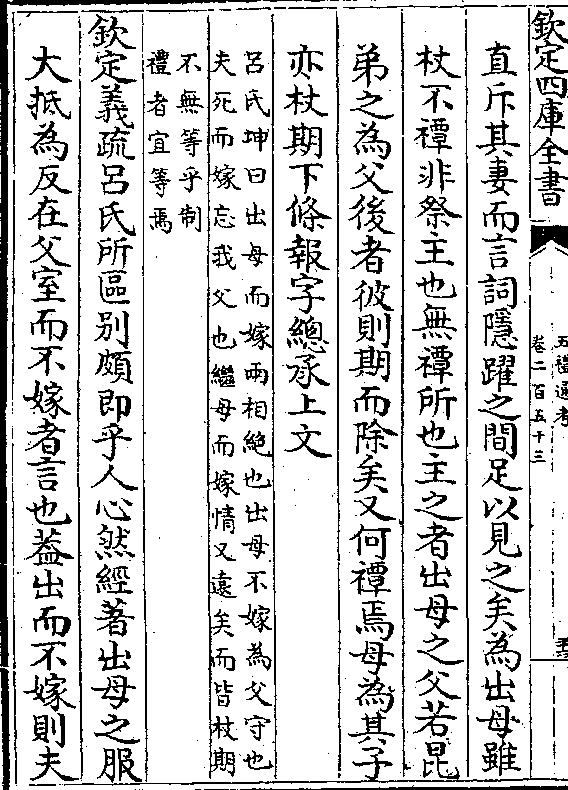 欽定四庫全書
五禮通考
卷二百五十三
直斥其妻而言詞隱躍之間足以見之矣為出母雖
杖不禫非祭主也無禫所也主之者出母之父若昆
弟之為父後者彼則期而除矣又何禫焉母為其子
亦杖期下條報字總承上文
呂氏坤曰出母而嫁兩相絶也出母不嫁為父守也
夫死而嫁忘我父也繼母而嫁情又遠矣而皆杖期
不無等乎制
禮者宜等焉
欽定義疏呂氏所區别頗即乎人心然經著出母之服
大抵為反在父室而不嫁者言也葢出而不嫁則夫